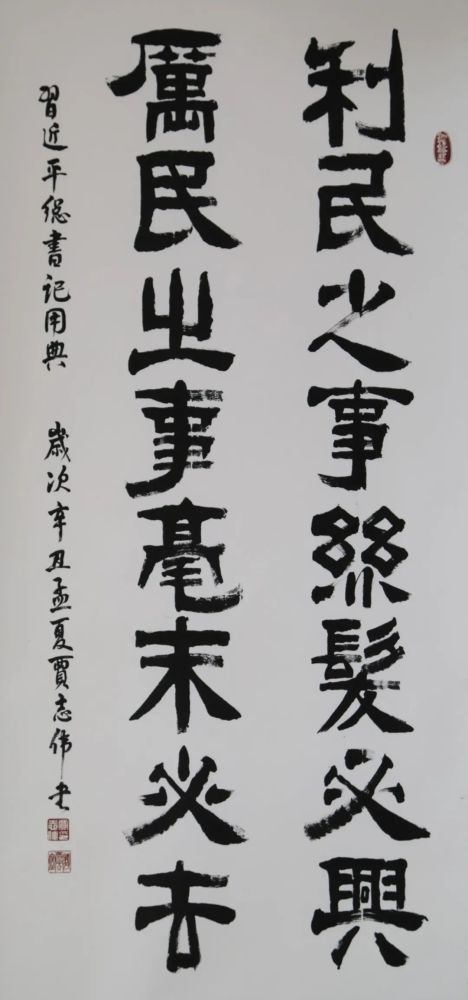 利民之事絲髮必興
厲民之事毫末必去
習近平總書記用典 歲次辛丑孟夏賈志伟书